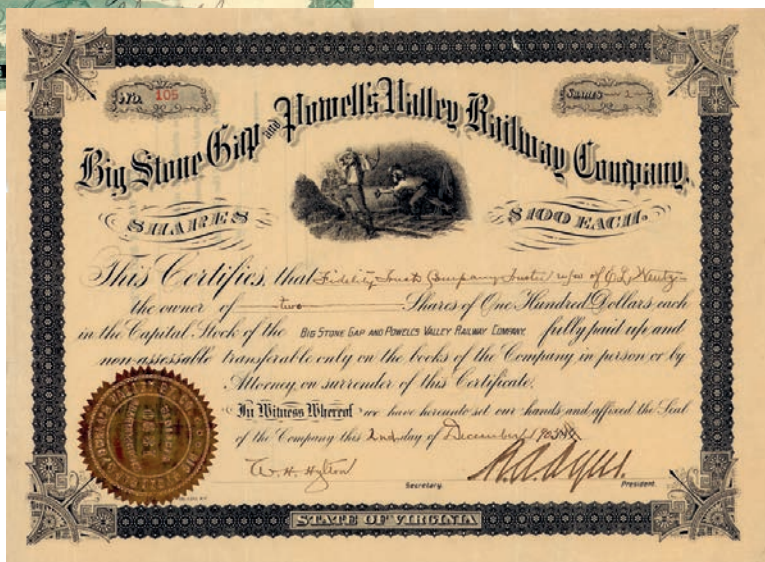 No. 105
SHARES 2
Big Stone Gap and Powell's Valley Railway Company.
SHARES $100 EACH.
This Certifies, that Fidelity Trust Company Trustee u/w of
the owner of two Shares of One Hundred Dollars each
in the Capital Stock of the BIG STONE GAP AND POWELL'S VALLEY RAILWAY COMPANY, fully paid up and
non-assessable transferable only on the books of the Company in person or by
Attorney on surrender of this Certificate.
In Witness Whereof we have hereunto set our hands and affixed the Seal
of the Company this 2nd day of December
W. H. Hylton
Secretary. President.
STATE OF VIRGINIA